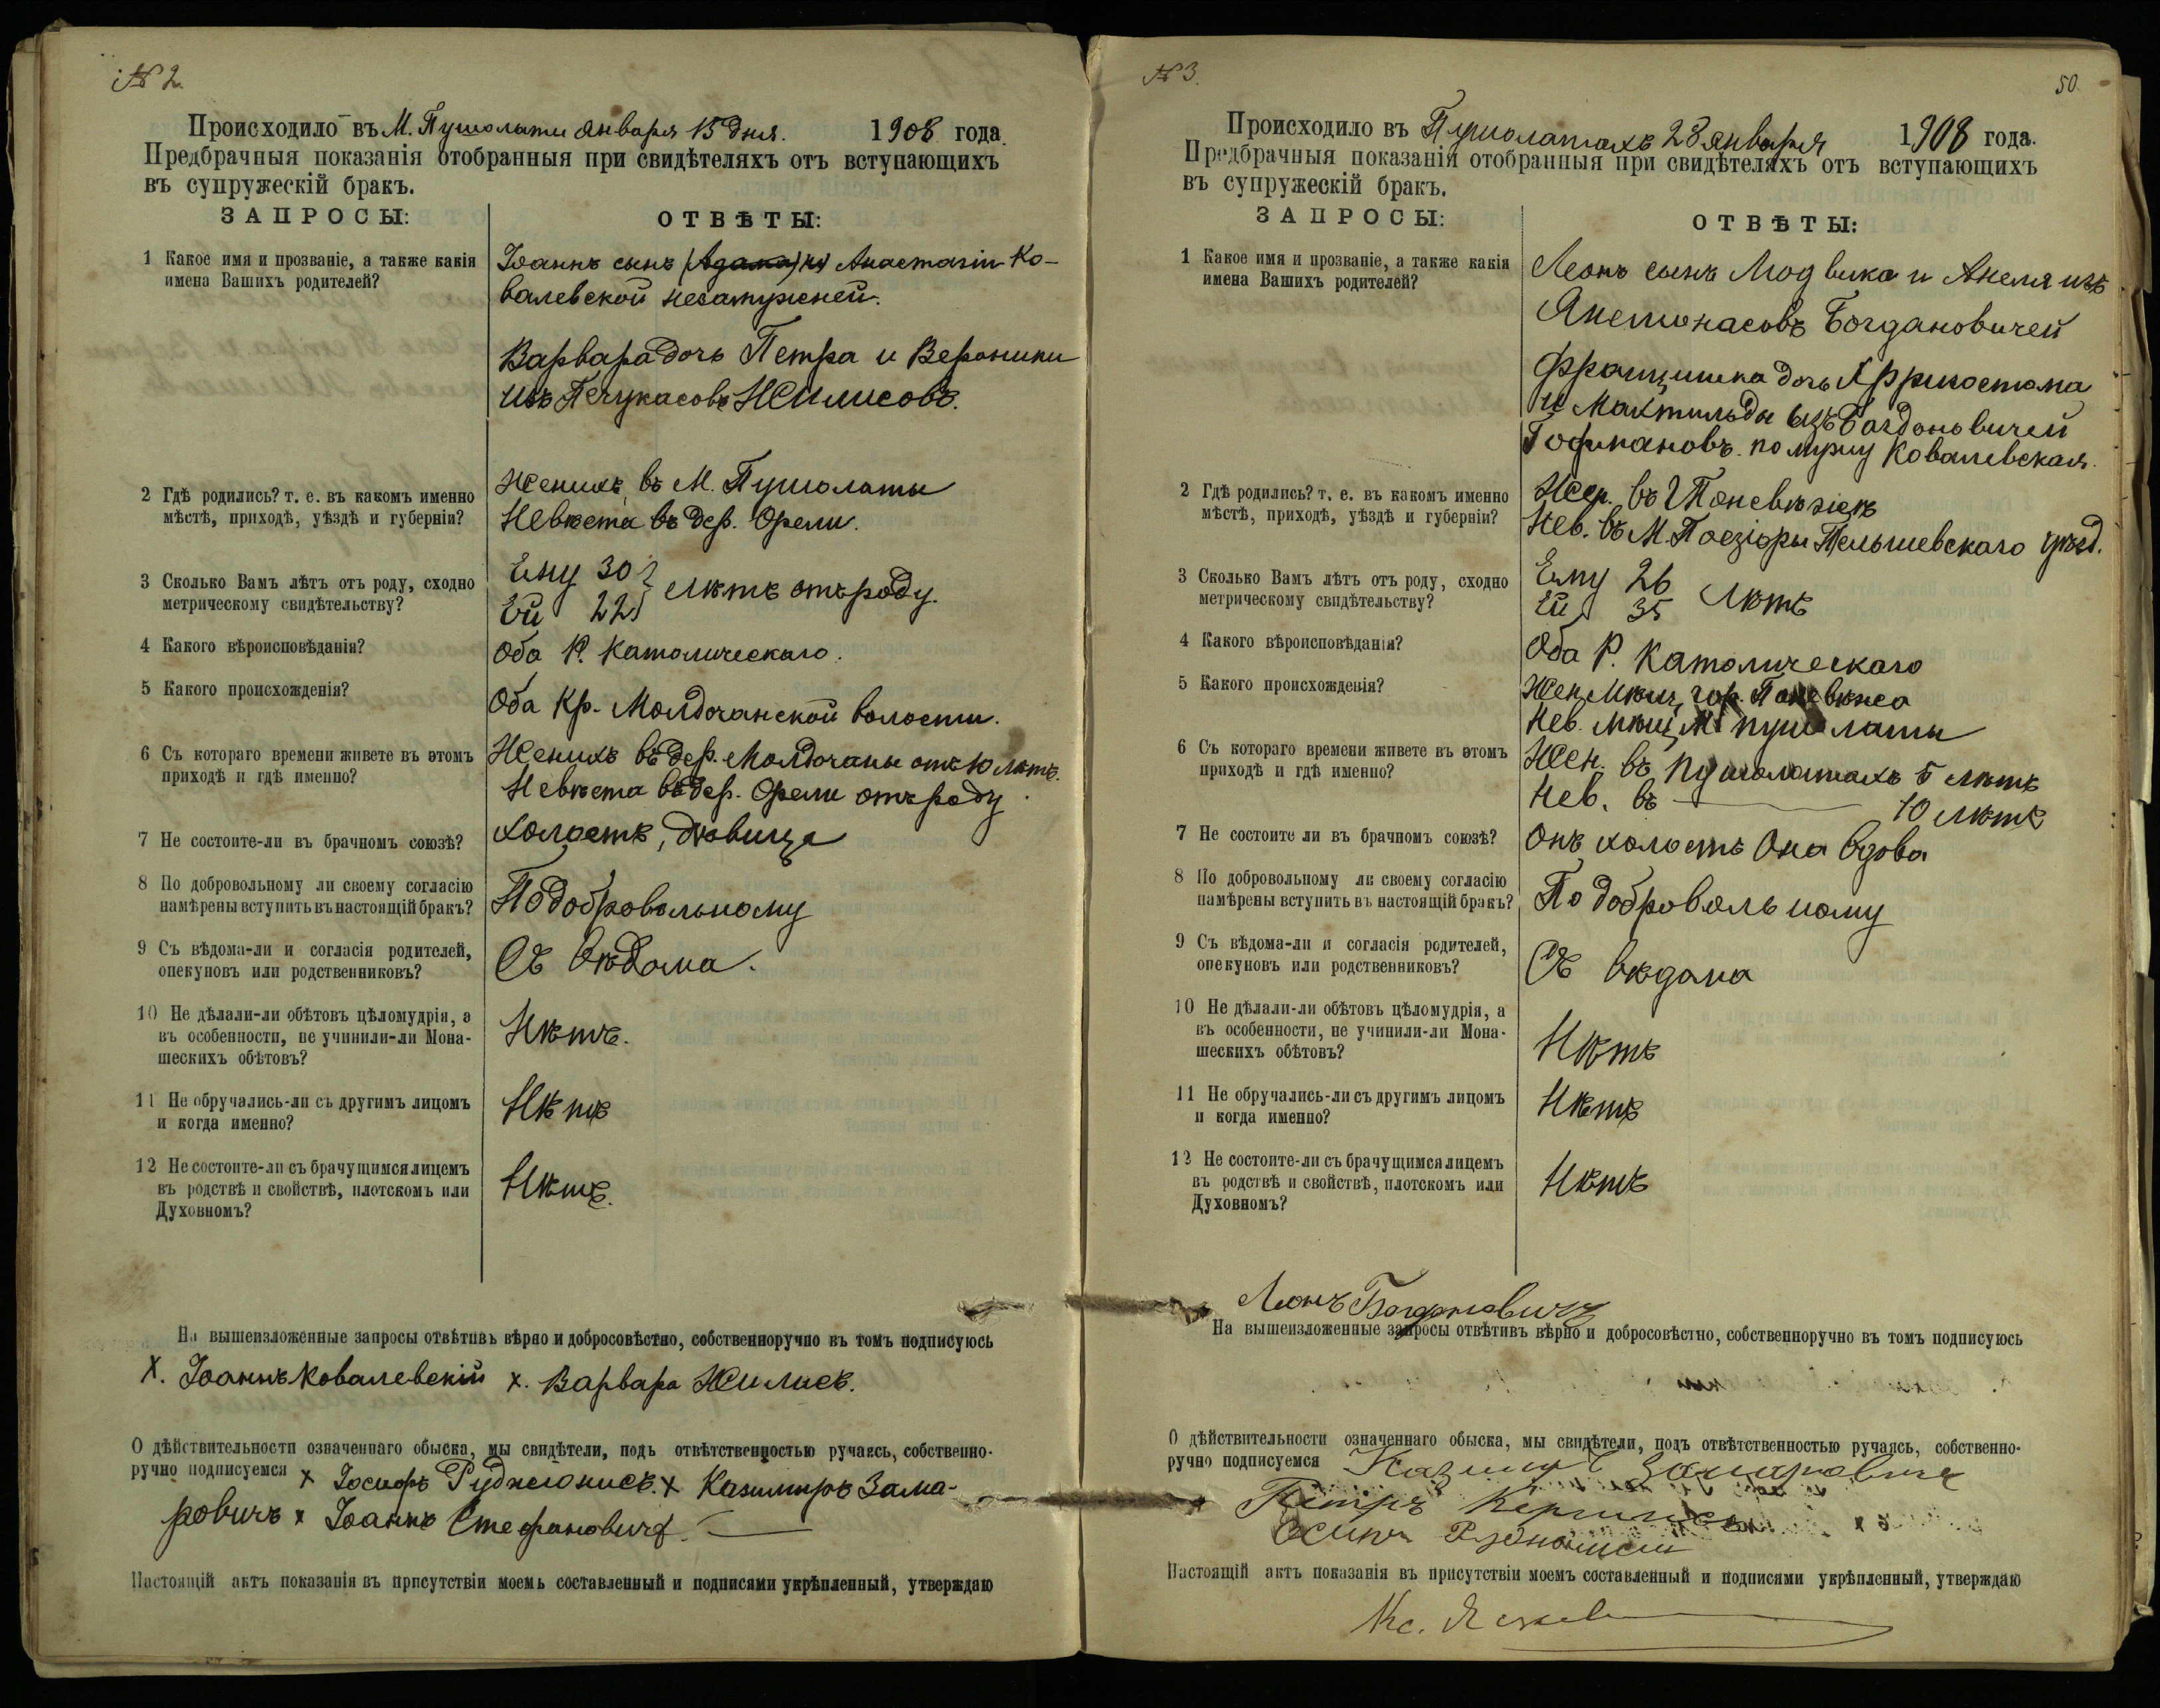 № 2.
Происходило въ М. Пушолаты января 15 дня. 1908 года.
Предбрачныя показанія отобранныя при свидѣтеляхъ отъ вступающихъ
въ супружескій бракъ.
ЗАПРОСЫ: ОТВѢТЫ:
1 Какое имя и прозваніе, а также какія
имена Вашихъ родителей?
Іоаннъ сынъ (Адама) и Анастазіи Ко-
валевской незамужней.
Варвара дочь Петра и Вероники
изъ Печукасовъ Жилисовъ.
2 Гдѣ родились? т. е. въ какомъ именно
мѣстѣ, приходѣ, уѣздѣ и губерніи?
Женихъ въ М. Пушолаты
Невѣста въ дер. Орели.
3 Сколько Вамъ лѣтъ отъ роду, сходно
метрическому свидѣтельству?
Ему 30
Ей 22 лѣтъ отъ роду.
4 Какого вѣроисповѣданія?
Оба Р. Католическаго.
5 Какого происхожденія?
Оба Кр. Молдочанской волости.
6 Съ котораго времени живете въ этомъ
приходѣ и гдѣ именно?
Женихъ въ дер. Молдочаны отъ 10 лѣтъ.
Невѣста въ дер. Орели отъ роду
7 Не состоите-ли въ брачномъ союзѣ?
холостъ, дѣвица
8 По добровольному ли своему согласію
намѣрены вступить въ настоящій бракъ?
По добровольному
9 Съ вѣдома-ли и согласія родителей,
опекуновъ или родственниковъ?
Съ вѣдома.
10 Не дѣлали-ли обѣтовъ цѣломудрія, а
въ особенности, не учинили-ли Мона-
шескихъ обѣтовъ?
Нѣтъ.
11 Не обручались-ли съ другимъ лицомъ
и когда именно?
Нѣтъ
12 Не состоите-ли съ брачущимся лицемъ
въ родствѣ и свойствѣ, плотскомъ или
Духовномъ?
Нѣтъ.
На вышеизложенные запросы отвѣтивъ вѣрно и добросовѣстно, собственноручно въ томъ подписуюсь
х. Іоаннъ Ковалевскій х. Варвара Жилисъ.
О дѣйствительности означеннаго обыска, мы свидѣтели, подъ отвѣтственностью ручаясь, собственно-
ручно подписуемся х Іосифъ Руджіонисъ. х Казимиръ Зама-
ровичъ х Іоаннъ Стефановичъ.
Настоящій актъ показанія въ присутствіи моемъ составленный и подписями укрѣпленный, утверждаю
№ 3. 50.
Происходило въ Пушолатахъ 28 января 1908 года.
Предбрачныя показанія отобранныя при свидѣтеляхъ отъ вступающихъ
въ супружескій бракъ.
ЗАПРОСЫ: ОТВѢТЫ:
1 Какое имя и прозваніе, а также какія
имена Вашихъ родителей?
Леонъ сынъ Людвика и Анеля изъ
Янемонасовъ Богдановичей
Францишка дочь Хризостома
и Мактильды изъ Богдоновичей
Гофмановъ. по мужу Ковалевская.
2 Гдѣ родились? т. е. въ какомъ именно
мѣстѣ, приходѣ, уѣздѣ и губерніи?
Жен. въ г Поневѣзіеѣ
Нев. въ М. Поезіоры Тельшевскаго уѣзд.
3 Сколько Вамъ лѣтъ отъ роду, сходно
метрическому свидѣтельству?
Ему 26
Ей 35 лѣтъ
4 Какого вѣроисповѣданія?
Оба Р. Католическаго
5 Какого происхожденія?
Жен. мѣщ. гор. Поневѣжа
Нев. мѣщ. М. Пушолаты
6 Съ котораго времени живете въ этомъ
приходѣ и гдѣ именно?
Жен. въ Пушолатахъ 5 лѣтъ
Нев. въ — 10 лѣтъ
7 Не состоите ли въ брачномъ союзѣ?
Онъ холостъ Она вдова
8 По добровольному ли своему согласію
намѣрены вступить въ настоящій бракъ?
По добровольному
9 Съ вѣдома-ли и согласія родителей,
опекуновъ или родственниковъ?
Съ вѣдома
10 Не дѣлали-ли обѣтовъ цѣломудрія, а
въ особенности, не учинили-ли Мона-
шескихъ обѣтовъ?
Нѣтъ
11 Не обручались-ли съ другимъ лицомъ
и когда именно?
Нѣтъ
12 Не состоите-ли съ брачущимся лицемъ
въ родствѣ и свойствѣ, плотскомъ или
Духовномъ?
Нѣтъ
Леонъ Богдановичъ
На вышеизложенные запросы отвѣтивъ вѣрно и добросовѣстно, собственноручно въ томъ подписуюсь
О дѣйствительности означеннаго обыска, мы свидѣтели, подъ отвѣтственностью ручаясь, собственно-
ручно подписуемся Казимиръ Замаровичъ
Петръ
Осипъ
Настоящій актъ показанія въ присутствіи моемъ составленный и подписями укрѣпленный, утверждаю
Кс.